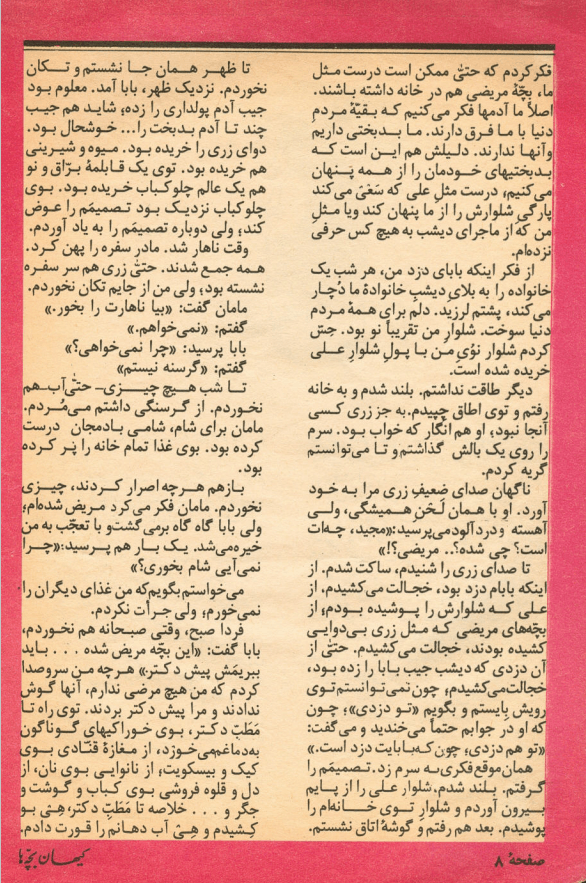 فکر کردم که حتّیٰ ممکن است درست مثل
ما، بچّهٔ مریضی هم در خانه داشته باشند.
اصلاً ما آدمها فکر می‌کنیم که بقیّهٔ مردمِ
دنیا با ما فرق دارند. ما بدبختی داریم
و آنها ندارند. دلیلش هم این است که
بدبختیهای خودمان را از همه پنهان
می‌کنیم، درست مثلِ علی که سَعْیْ می‌کند
پارگی شلوارش را از ما پنهان کند ویا مثلِ
من که از ماجرای دیشب به هیچ کس حرفی
نزده‌ام.
از فکر اینکه بابای دزد من، هر شب یک
خانواده را به بلای دیشبِ خانوادهٔ ما دُچار
می‌کند، پشتم لرزید. دلم برای همهٔ مردم
دنیا سوخت. شلوارِ من تقریباً نو بود. حِسّ
کردم شلوار نوُیِ من با پولِ شلوارِ علی
خریده شده است.
دیگر طاقت نداشتم. بلند شدم و به خانه
رفتم و توی اطاق چپیدم. به جز زری کسی
آنجا نبود، او هم انگار که خواب بود. سرم
را روی یک بالش گذاشتم و تا می‌توانستم
گریه کردم.
ناگهان صدای ضعیفِ زری مرا به خود
آورد. او با همان لَحْنِ همیشگی، ولی
آهسته و دردآلود می‌پرسید: «مجید، چه‌ات
است؟ چی شده؟.. مریضی؟!»
تا صدای زری را شنیدم، ساکت شدم. از
اینکه بابام دزد بود، خجالت می‌کشیدم. از
علی که شلوارش را پوشیده بودم، از
بچّه‌های مریضی که مثل زری بی‌دوایی
کشیده بودند، خجالت می‌کشیدم. حتّیٰ از
آن دزدی که دیشب جیب بابا را زده بود،
خجالت می‌کشیدم، چون نمی‌توانستم توی
رویش بایستم و بگویم «تو دزدی»، چون
که او در جوابم حتماً می‌خندید و می‌گفت:
«تو هم دزدی، چون که بابایت دزد است.»
همان موقع فکری به سرم زد. تصمیمَم را
گرفتم. بلند شدم. شلوار علی را از پایم
بیرون آوردم و شلوارِ توی خانه‌ام را
پوشیدم. بعد هم رفتم و گوشهٔ اتاق نشستم.
تا ظهر همان جا نشستم و تکان
نخوردم. نزدیک ظهر، بابا آمد. معلوم بود
جیب آدم پولداری را زده، شاید هم جیب
چند تا آدم بدبخت را... خوشحال بود.
دوای زری را خریده بود. میوه و شیرینی
هم خریده بود. توی یک قابلمهٔ برّاق و نو
هم یک عالم چلوکباب خریده بود. بوی
چلوکباب نزدیک بود تصمیمَم را عوض
کند، ولی دوباره تصمیمَم را به یاد آوردم.
وقت ناهار شد. مادر سفره را پهن کرد.
همه جمع شدند. حتّیٰ زری هم سر سفره
نشسته بود، ولی من از جایم تکان نخوردم.
مامان گفت: «بیا ناهارت را بخور.»
گفتم: «نمی‌خواهم.»
بابا پرسید: «چرا نمی‌خواهی؟»
گفتم: «گرسنه نیستم»
تا شب هیچ چیزی- حتّیٰ آب- هم
نخوردم. از گرسنگی داشتم می‌مُردم.
مامان برای شام، شامی بادمجان درست
کرده بود. بوی غذا تمام خانه را پُر کرده
بود.
بازهم هرچه اصرار کردند، چیزی
نخوردم. مامان فکر می‌کرد مریض شده‌ام،
ولی بابا گاه گاه برمی‌گشت و با تعجّب به من
خیره می‌شد. یک بار هم پرسید: «چرا
نمی‌آیی شام بخوری؟»
می‌خواستم بگویم که من غذای دیگران را
نمی‌خورم، ولی جرأت نکردم.
فردا صبح، وقتی صبحانه هم نخوردم،
بابا گفت: «این بچّه مریض شده . . . باید
ببریمَش پیش دکتر.» هرچه من سروصدا
کردم که من هیچ مرضی ندارم، آنها گوش
ندادند و مرا پیش دکتر بردند. توی راه تا
مَطَبّ دکتر، بوی خوراکیهای گوناگون
به دماغم می‌خورد، از مغازهٔ قنّادی بوی
کیک و بیسکویت، از نانوایی بوی نان، از
دل و قلوه فروشی بوی کباب و گوشت و
جگر و . . . خلاصه تا مَطَبّ دکتر، هِیْ بو
کشیدم و هِیْ آب دهانم را قورت دادم.
صفحهٔ ۸
کیهان بچّه‌ها